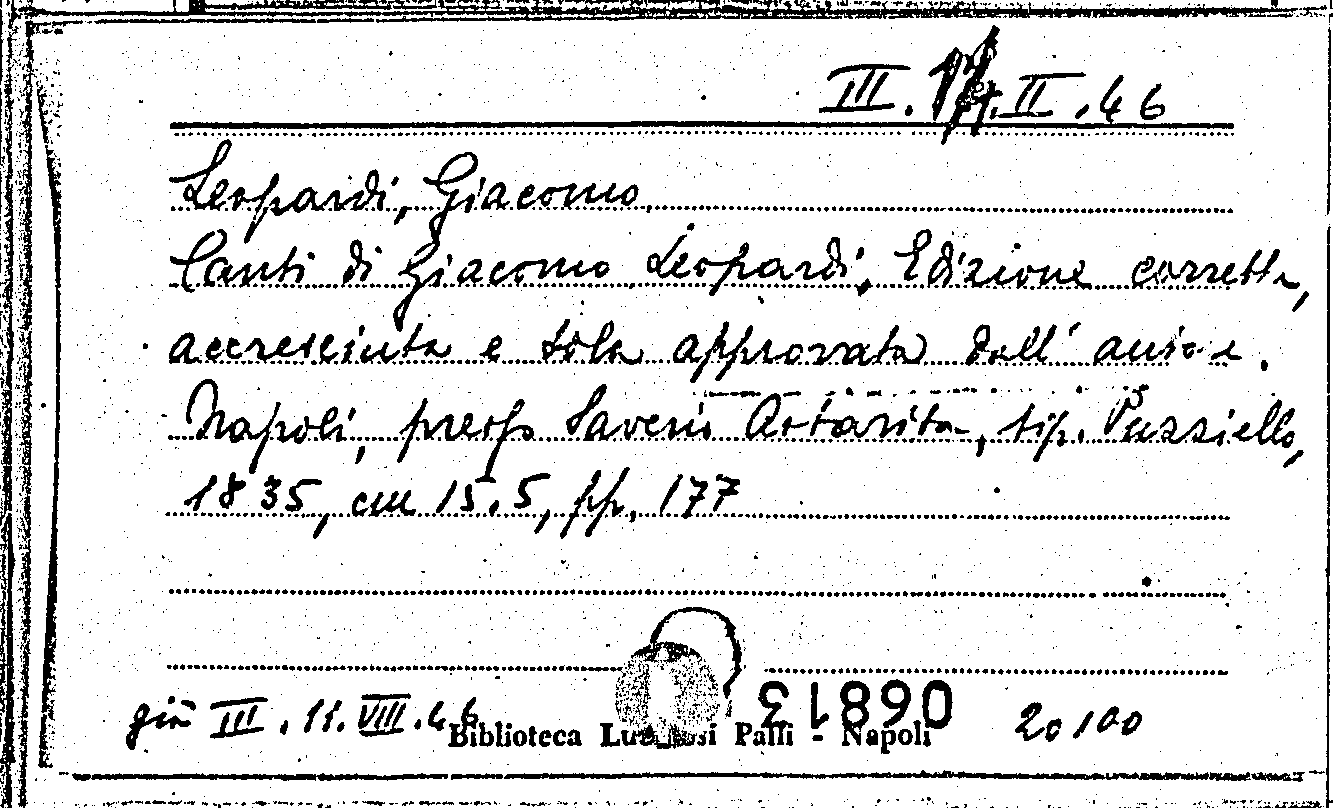 III. II. 46
Leopardi, Giacomo
Canti di Giacomo Leopardi, Edizione corretta,
accresciuta e sola approvata dall' autore.
Napoli, presso Saverio Starita, tip. Puzziello,
1835, cm 15.5, pp. 177
già III. 11. VIII. 46
06813
20100
Biblioteca Lucchesi Palli - Napoli